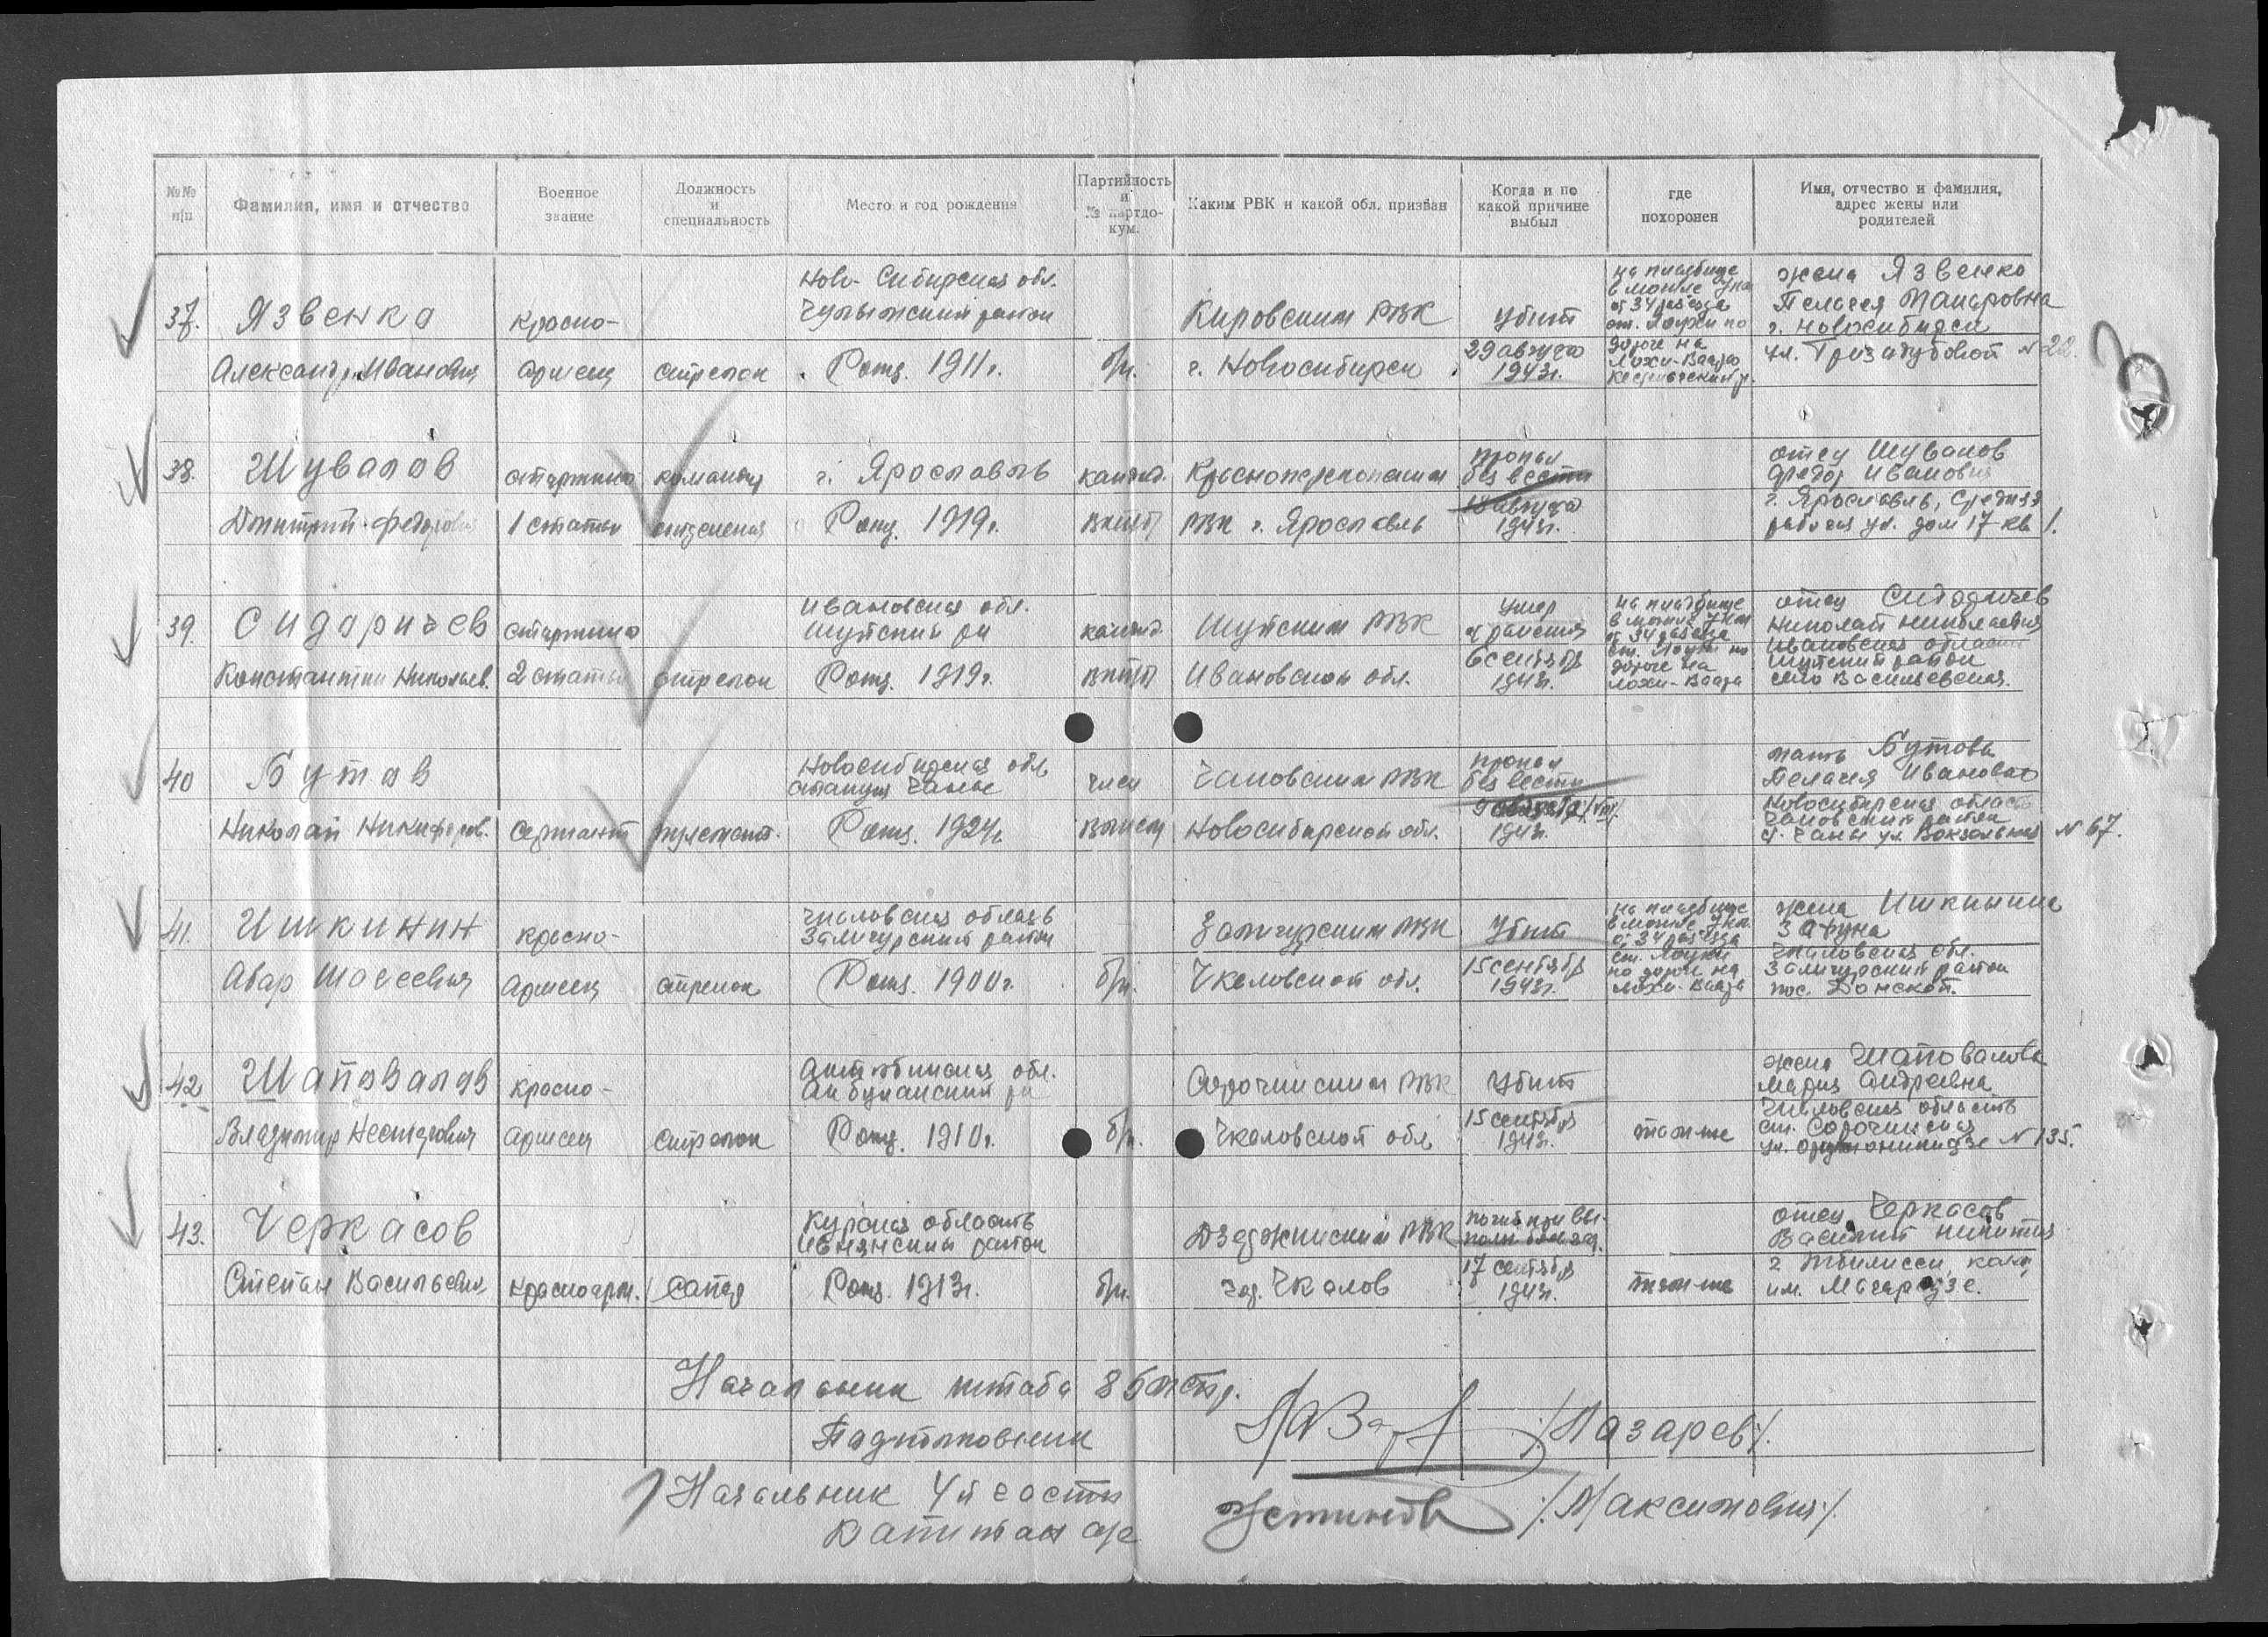 №№ п/п
Фамилия, имя и отчество
Военное звание
Должность и специальность
Место и год рождения
Партийность и № партдокум.
Каким РВК и какой обл. призван
Когда и по какой причине выбыл
где похоронен
Имя, отчество и фамилия, адрес жены или родителей
37. Язвенко
Александр Иванович
красно-
армеец
стрелок
Ново-Сибирская обл.
Чулымский район
Рожд. 1911г.
б/п.
Кировским РВК
г. Новосибирск
убит
29 августа
1943г.
на кладбище
от 34 разъезда
ст. Лоухи по
дороге на
Кестеньгский р.
жена Язвенко
Пелагея
г. Новосибирск
ул. Гризодубовой № 22
38. Шувалов
Дмитрий Федорович
старшина
1 статьи
командир
отделения
г. Ярославль
Рожд. 1919г.
канд.
ВКП(б)
Красноперекопским
РВК г. Ярославль
пропал
без вести
18 августа
1943г.
отец Шувалов
Федор Иванович
г. Ярославль, Средняя
рабочая ул. дом 17 кв 1.
39. Сидоричев
Константин Николаев.
старшина
2 статьи
стрелок
Ивановская обл.
Шуйский р-н
Рожд. 1919г.
канд.
ВКП(б)
Шуйским РВК
Ивановской обл.
умер
от ранения
6 сентября
1943г.
на кладбище
от 34 разъезда
ст. Лоухи по
дороге на
отец Сидоричев
Николай Николаевич
Ивановская область
Шуйский район
село Васильевское.
40 Бутов
Николай Никифоров.
сержант
пулеметч.
Новосибирская обл
станция Чаны
Рожд. 1924г.
член
ВЛКСМ
Чановским РВК
Новосибирской обл.
пропал
без вести
1943г.
мать Бутова
Пелагея Ивановна
Новосибирская область
Чановский район
ст. Чаны ул. Вокзальная № 67.
41. Ишкинин
красно-
армеец
стрелок
Чкаловская область
Рожд. 1900г.
б/п.
Чкаловской обл.
Убит
15 сентября
1943г.
на кладбище
от 34 разъезда
ст. Лоухи
по дороге на
жена Ишкинина
Чкаловская обл.
пос. Донской.
42 Шаповалов
Владимир Нестерович
красно-
армеец
стрелок
Актюбинская обл.
Рожд. 1910г.
б/п.
Сорочинским РВК
Чкаловской обл
Убит
15 сентября
1943г.
там же
жена Шаповалова
Мария Андреевна
Чкаловская область
ст. Сорочинская
ул. Орджоникидзе № 135.
43. Черкасов
Степан Васильевич
красноарм.
сапер
Курская область
Ивнянский район
Рожд. 1913г.
б/п.
Дзержинским РВК
гор. Чкалов
погиб при вы-
полн. боев. зад.
17 сентября
1943г.
там же
отец Черкасов
Василий Никитич
г. Тбилиси
им. Махарадзе.
Начальник штаба 85
Подполковник
/Лазарев/.
Начальник 4й части
Капитан а/с
Устинов
/Максимович/.